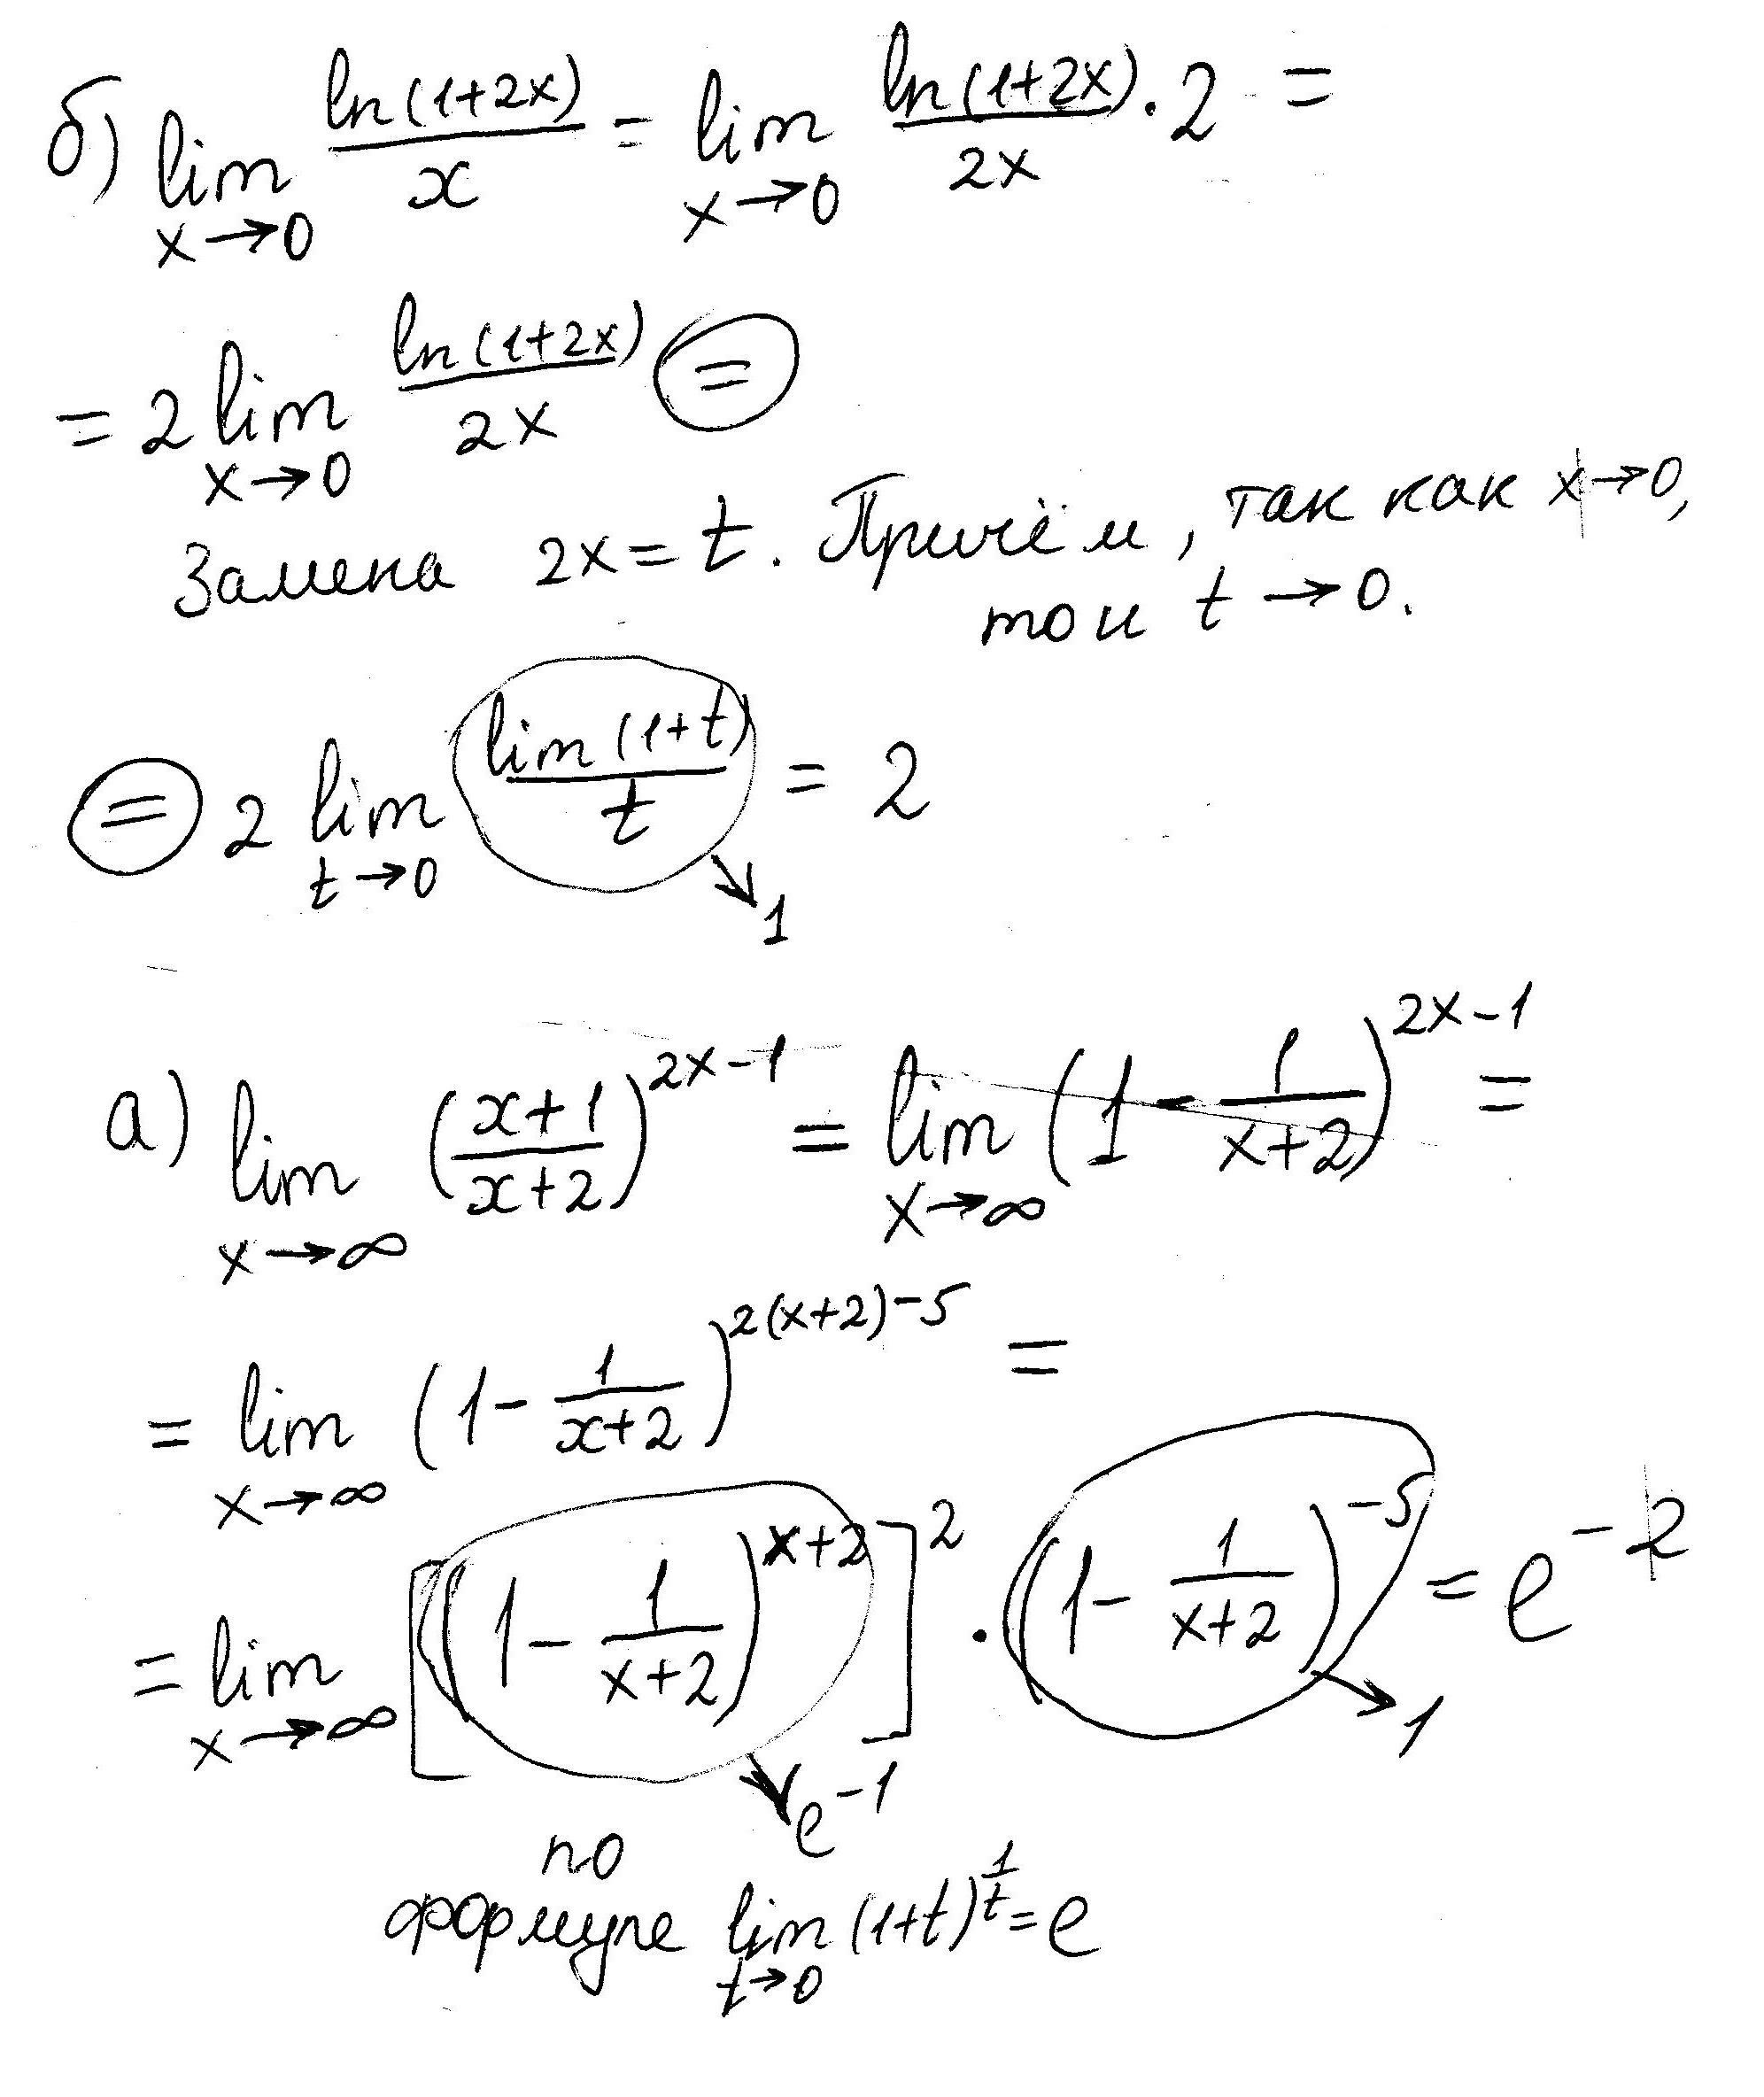 б) lim x→0 ln(1+2x)/x = lim x→0 ln(1+2x)/2x · 2 =
= 2 lim x→0 ln(1+2x)/2x =
Замена 2x = t. Причём, так как x→0,
то и t → 0.
= 2 lim t→0 lim(1+t)/t = 2
1
а) lim x→∞ ((x+1)/(x+2))^(2x-1) = lim x→∞ (1 - 1/(x+2))^(2x-1) =
= lim x→∞ (1 - 1/(x+2))^(2(x+2)-5) =
= lim x→∞ [(1 - 1/(x+2))^(x+2)]^2 · (1 - 1/(x+2))^(-5) = e^(-2)
e^(-1) 1
по
формуле lim t→0 (1+t)^(1/t) = e